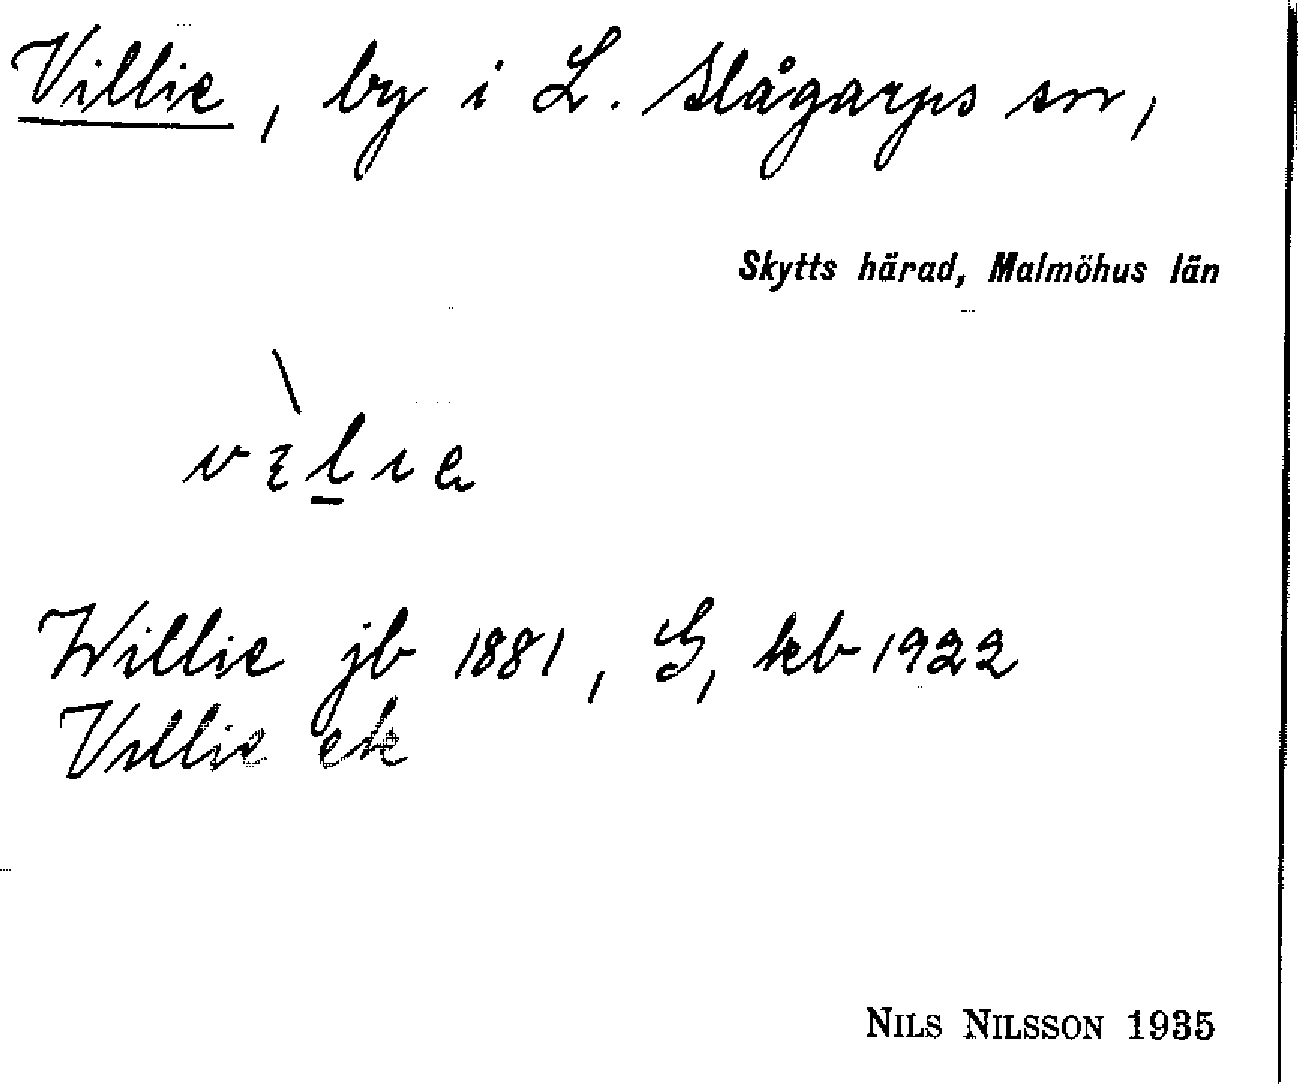 Villie, by i L. Slågarps sn,
Skytts härad, Malmöhus län
Willie jb 1881, G, kb 1922
Villie ek
NILS NILSSON 1935